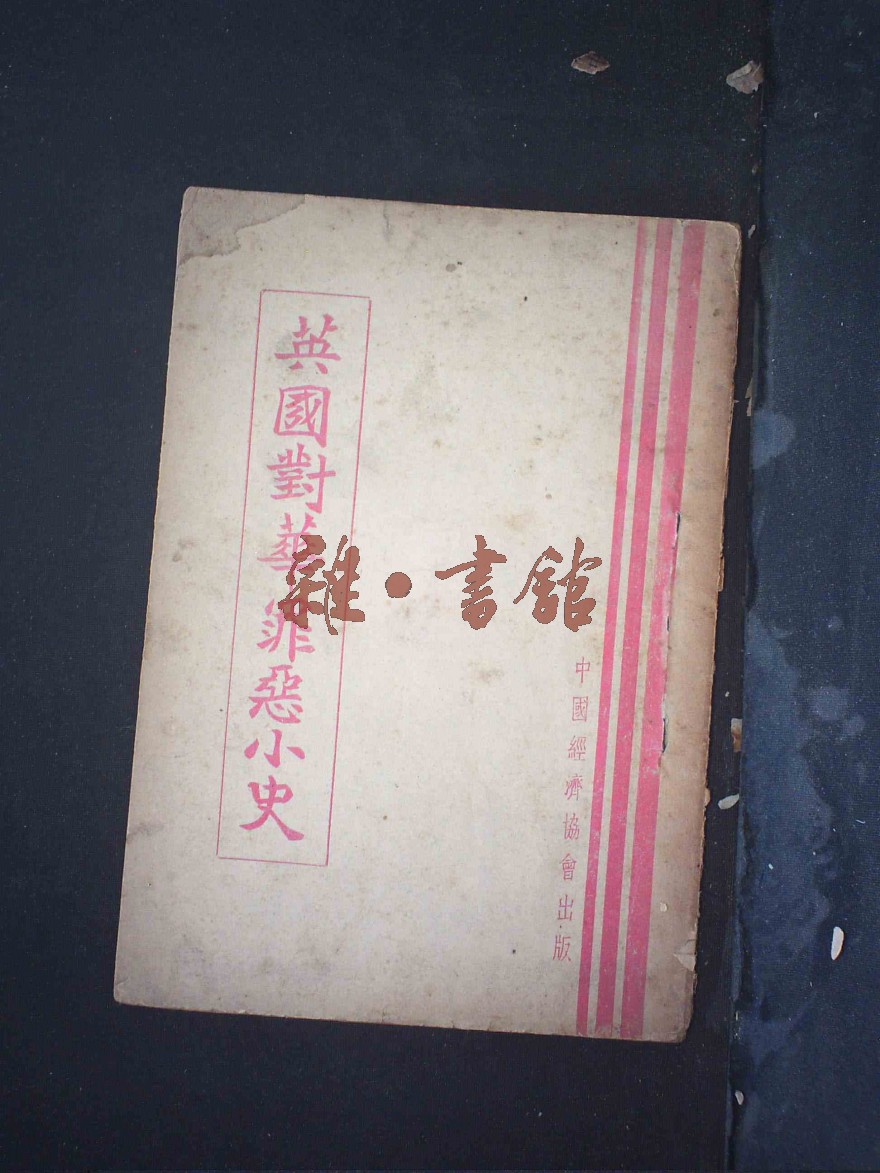 英國對華罪惡小史
中國經濟協會出版
雜·書館